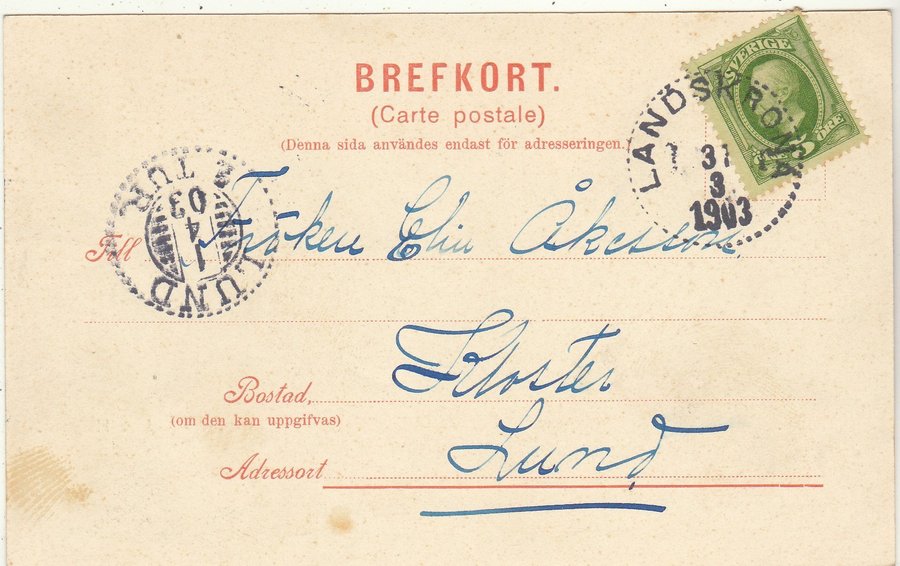 BREFKORT.
(Carte postale)
(Denna sida användes endast för adresseringen.)
SVERIGE
5 ÖRE
LANDSKRONA
31
3
1903
LUND
1
4
03
2 TUR
Till Fröken Elin Åkesson
Bostad, Kloster
(om den kan uppgifvas)
Adressort Lund